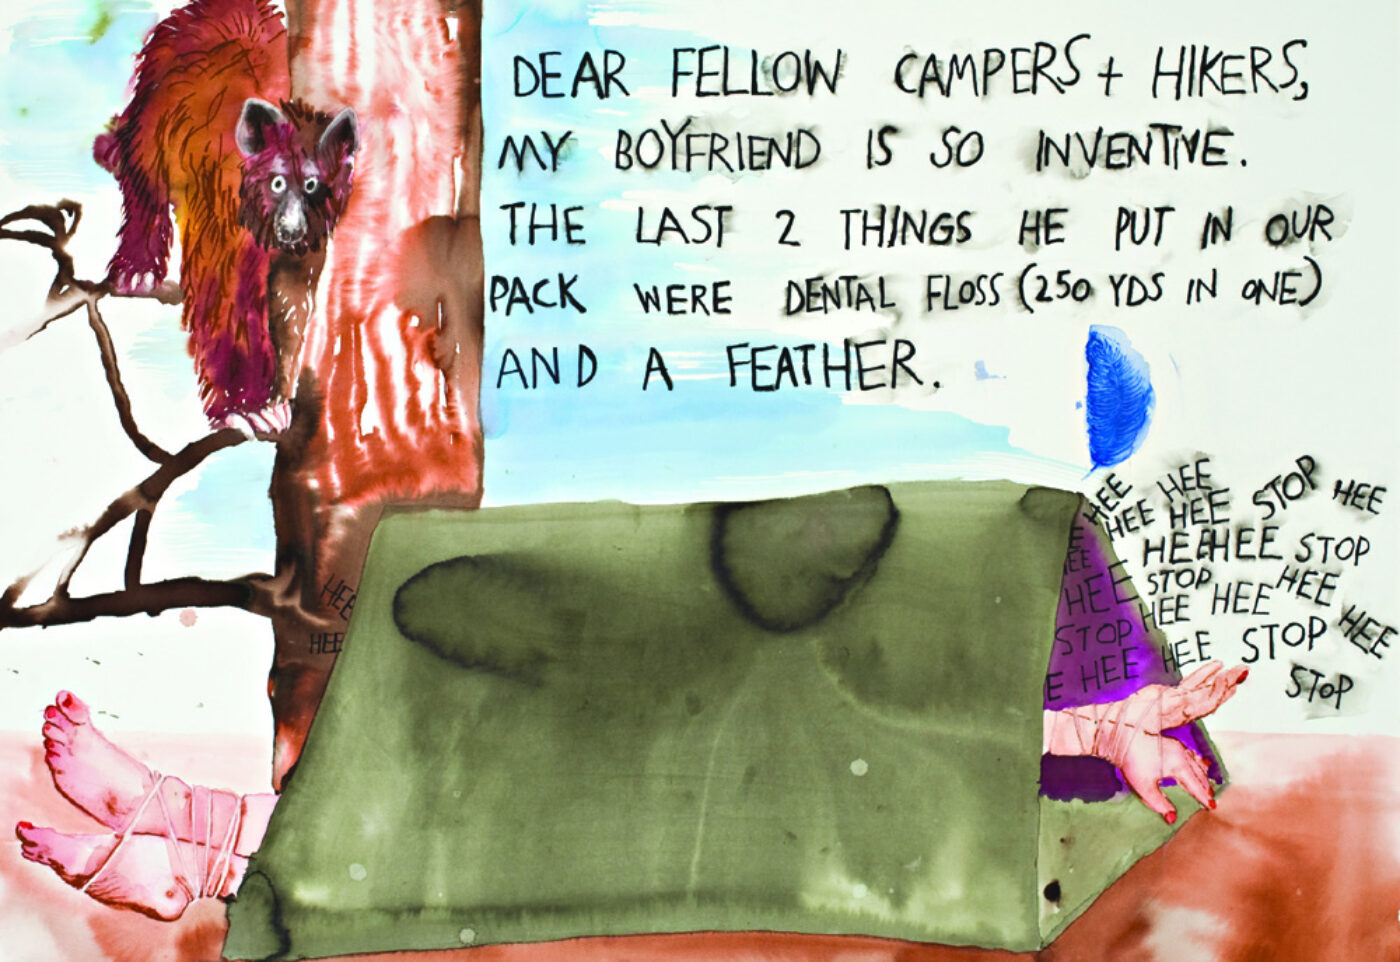 DEAR FELLOW CAMPERS + HIKERS,
MY BOYFRIEND IS SO INVENTIVE.
THE LAST 2 THINGS HE PUT IN OUR
PACK WERE DENTAL FLOSS (250 YDS IN ONE)
AND A FEATHER.
HEE HEE STOP HEE
HEE HEE
HEE HEE STOP
HEE STOP HEE
HEE HEE HEE
STOP HEE STOP
HEE HEE
STOP
HEE
HEE